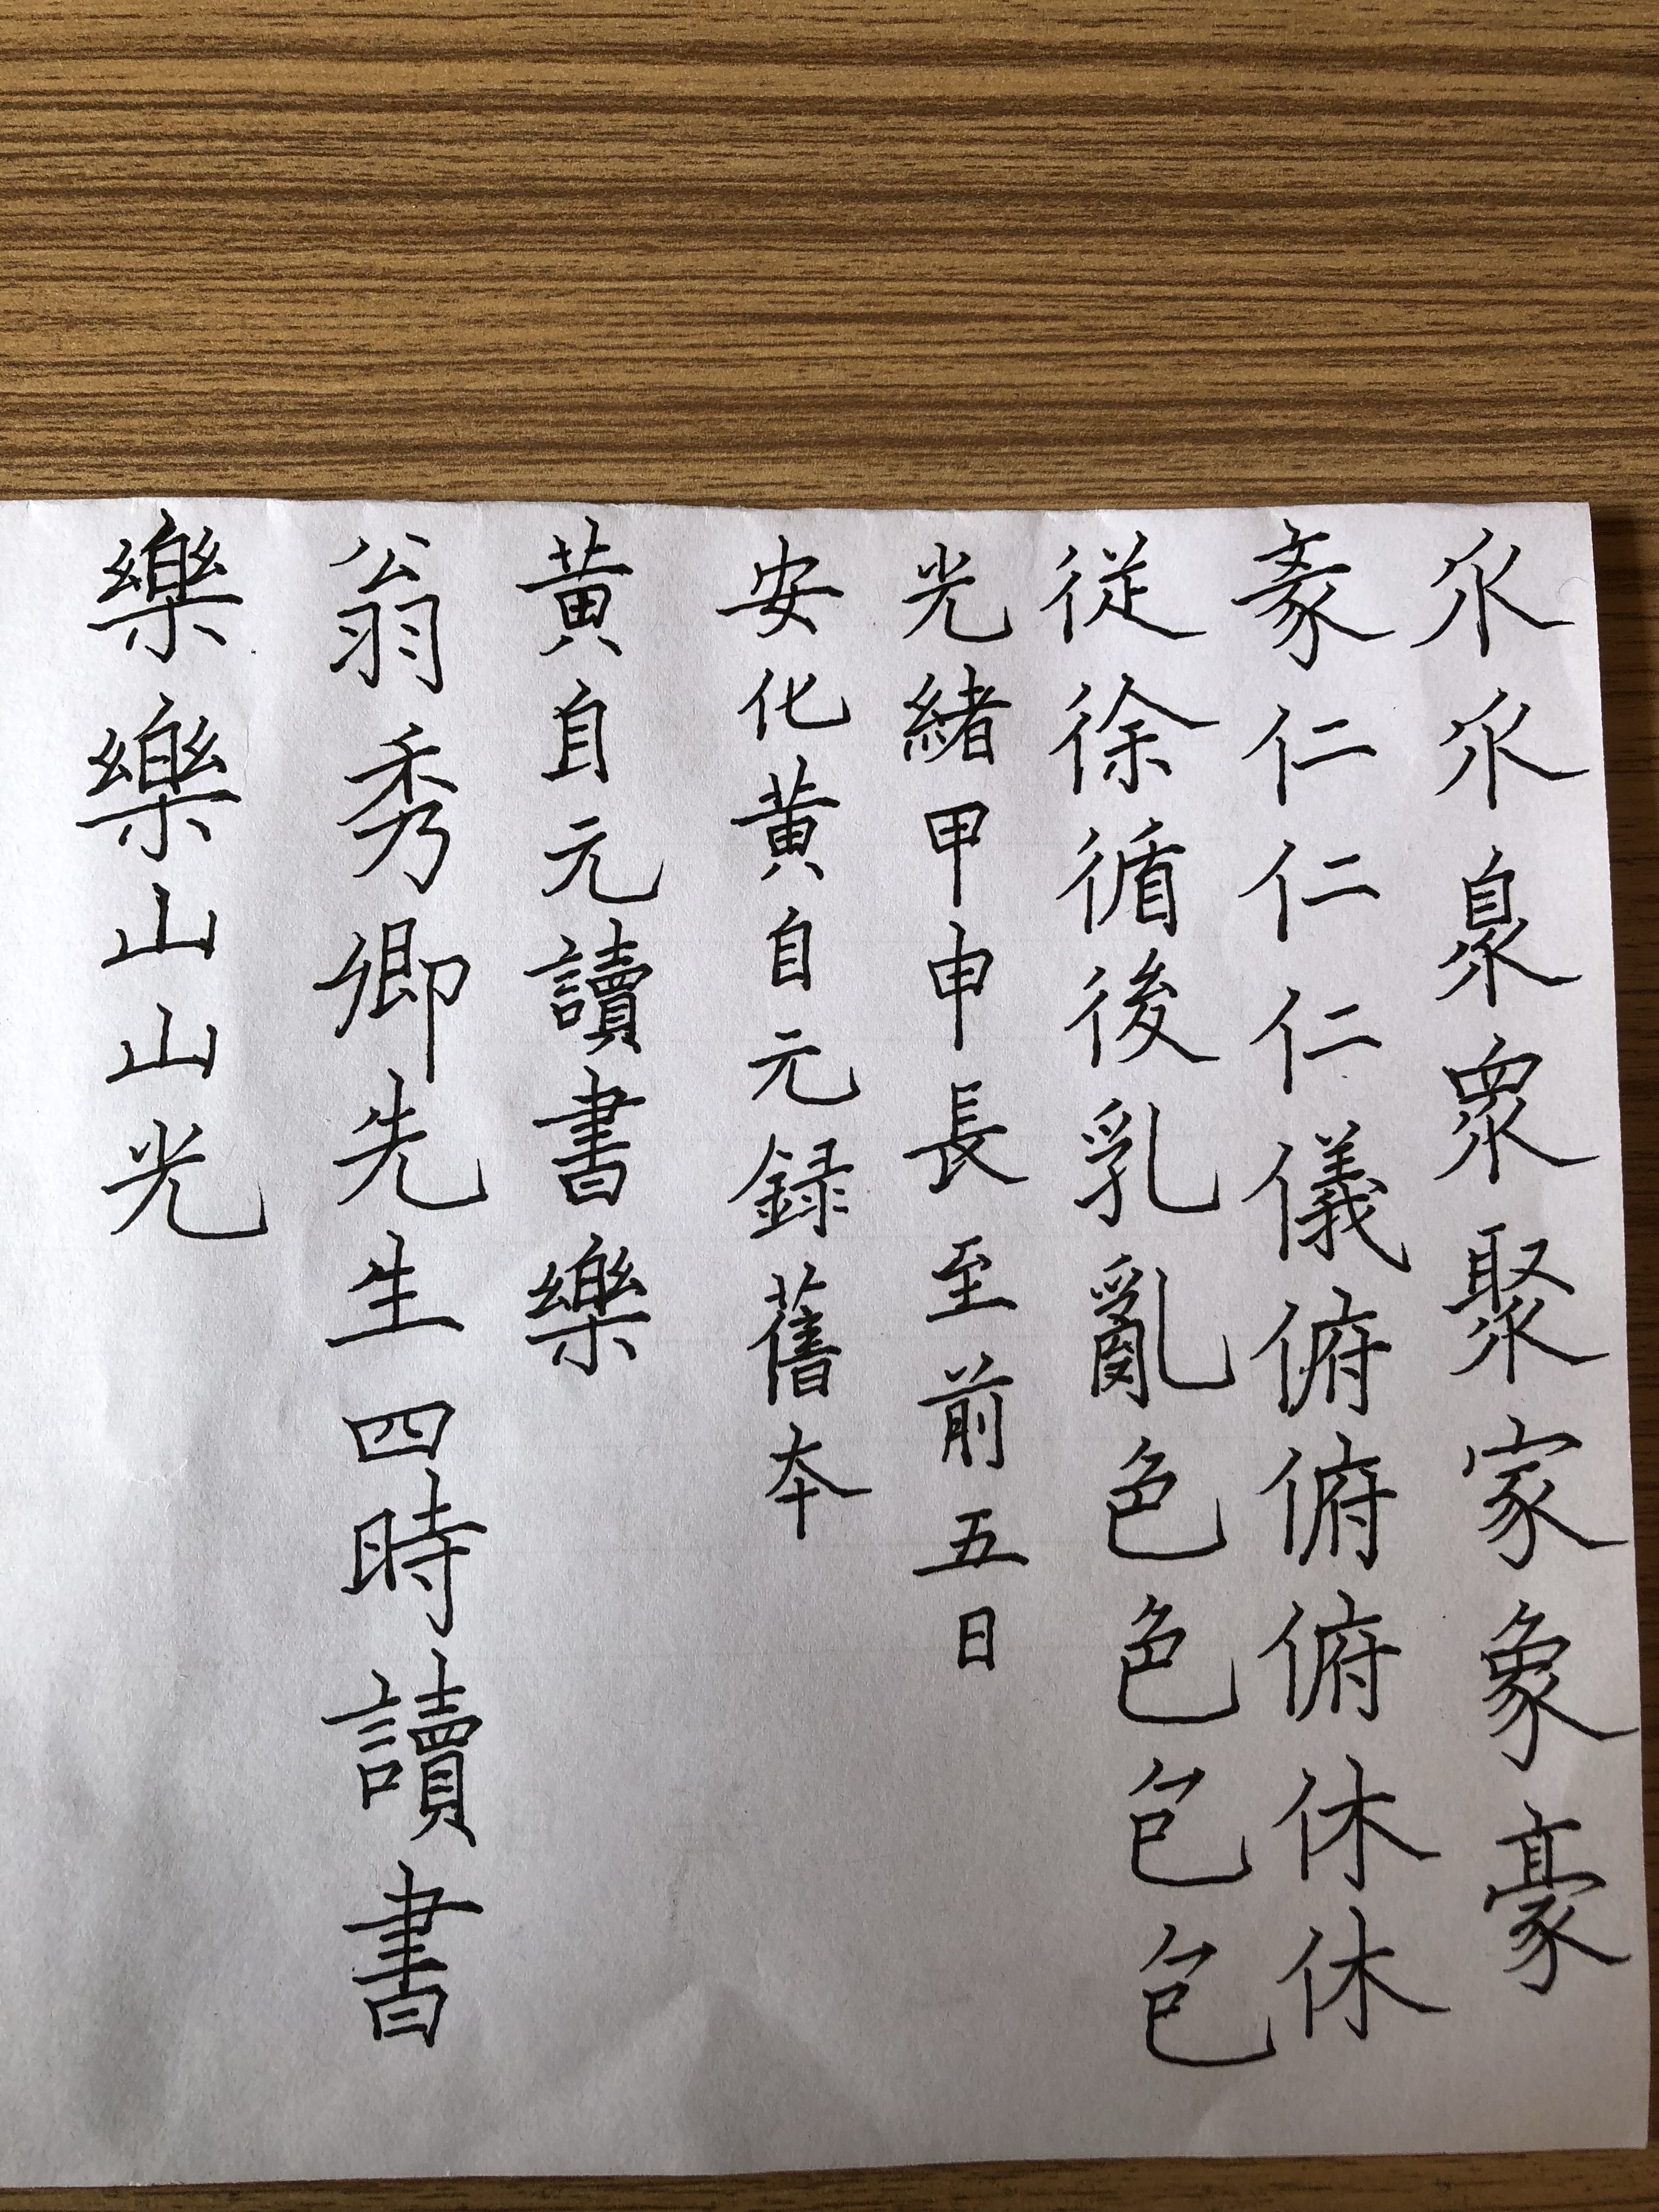 乑乑臮眾聚家象豪
豙仁仁仁儀俯俯俯休休
従徐循後乳亂色色包包
光緒甲申長至前五日
安化黄自元録舊本
黄自元讀書樂
翁秀卿先生四時讀書
樂樂山山光